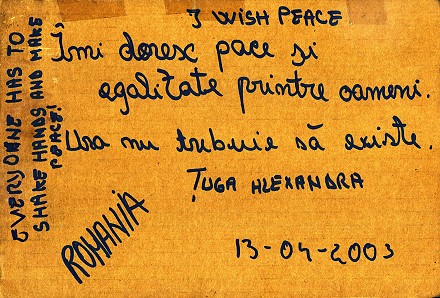 I WISH PEACE
Îmi doresc pace și
egalitate printre oameni.
Ura nu trebuie să existe.
ȚUGA ALEXANDRA
ROMANIA
13-04-2003
EVERYONE HAS TO
SHAKE HANDS AND MAKE
PEACE!